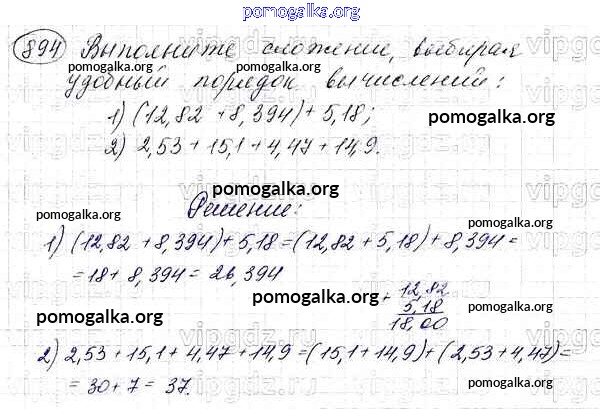 pomogalka.org
894 Выполните сложение, выбирая
pomogalka.org pomogalka.org
удобный порядок вычислений:
1) (12,82 + 8,394) + 5,18;
pomogalka.org
2) 2,53 + 15,1 + 4,47 + 14,9.
pomogalka.org
pomogalka.org Решение: pomogalka.org
1) (12,82 + 8,394) + 5,18 = (12,82 + 5,18) + 8,394 =
= 18 + 8,394 = 26,394
pomogalka.org
+ 12,82
5,18
18,00
pomogalka.org pomogalka.org
2) 2,53 + 15,1 + 4,47 + 14,9 = (15,1 + 14,9) + (2,53 + 4,47) =
= 30 + 7 = 37.
pomogalka.org pomogalka.org